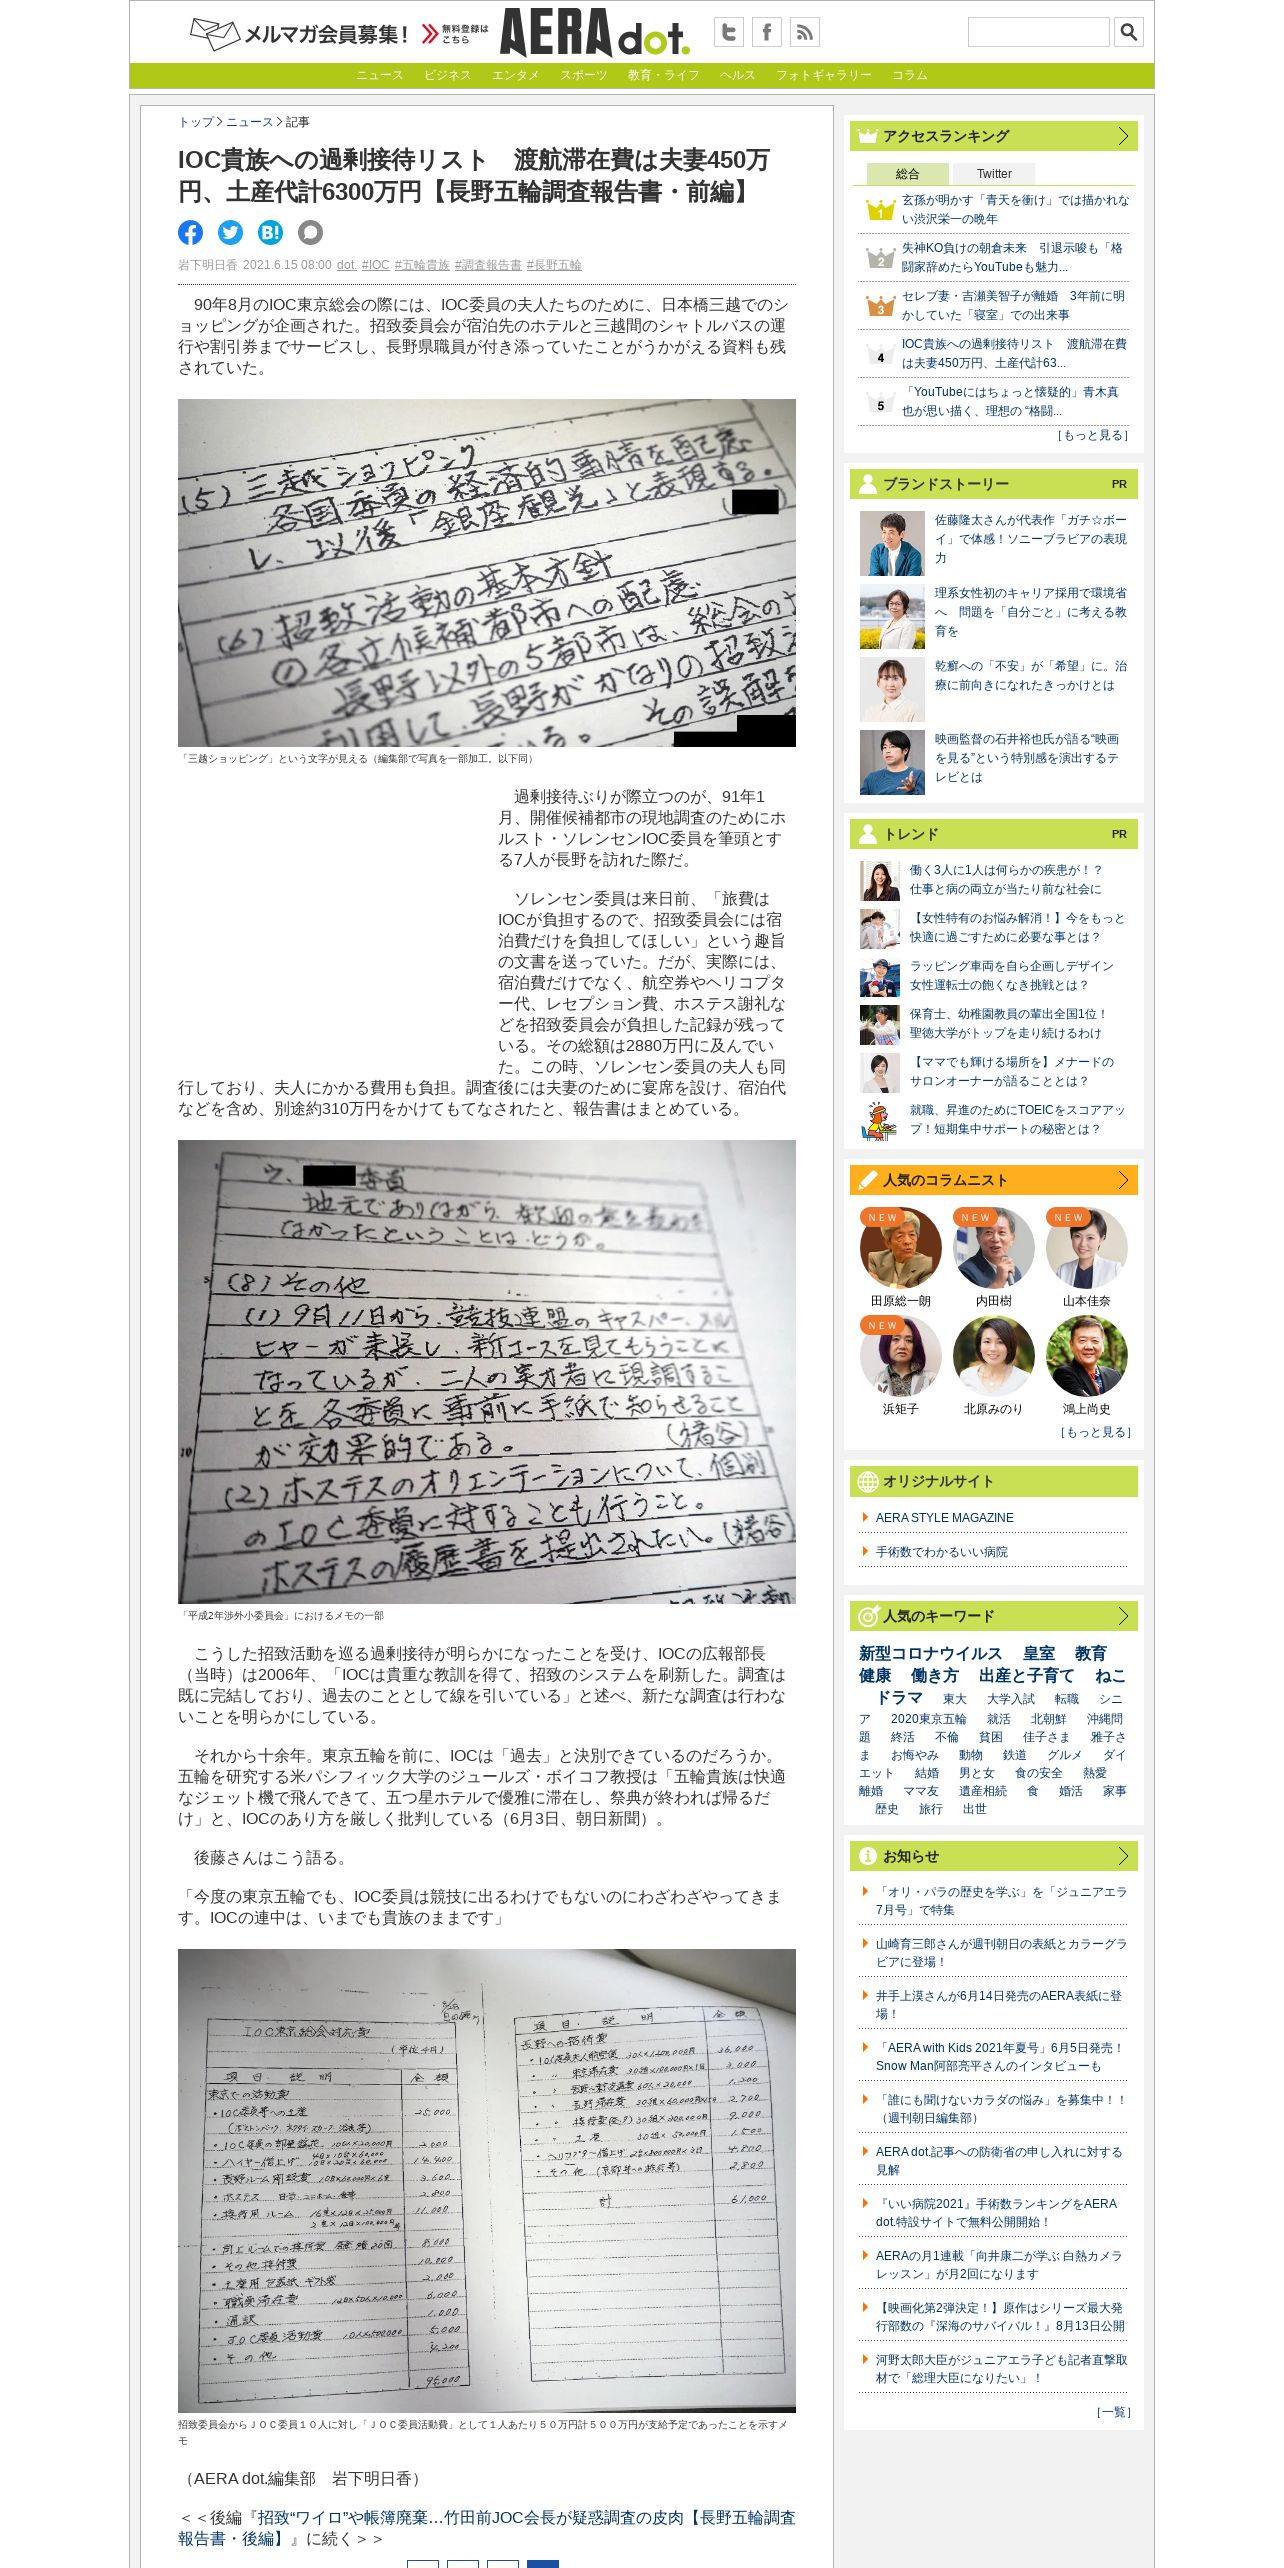 メルマガ会員募集！ 無料登録は こちら
AERA dot.
ニュース ビジネス エンタメ スポーツ 教育・ライフ ヘルス フォトギャラリー コラム
トップ > ニュース > 記事
IOC貴族への過剰接待リスト　渡航滞在費は夫妻450万
円、土産代計6300万円【長野五輪調査報告書・前編】
岩下明日香 2021.6.15 08:00 dot. #IOC #五輪貴族 #調査報告書 #長野五輪
　90年8月のIOC東京総会の際には、IOC委員の夫人たちのために、日本橋三越でのシ
ョッピングが企画された。招致委員会が宿泊先のホテルと三越間のシャトルバスの運
行や割引券までサービスし、長野県職員が付き添っていたことがうかがえる資料も残
されていた。
(5) 三越ショッピング
各国委員の経済的事情を配慮
し、以後「銀座観光」と表現する。
(6) 招致活動の基本方針
① 立候補都市への配慮
「三越ショッピング」という文字が見える（編集部で写真を一部加工。以下同）
　過剰接待ぶりが際立つのが、91年1
月、開催候補都市の現地調査のためにホ
ルスト・ソレンセンIOC委員を筆頭とす
る7人が長野を訪れた際だ。
　ソレンセン委員は来日前、「旅費は
IOCが負担するので、招致委員会には宿
泊費だけを負担してほしい」という趣旨
の文書を送っていた。だが、実際には、
宿泊費だけでなく、航空券やヘリコプタ
ー代、レセプション費、ホステス謝礼な
どを招致委員会が負担した記録が残って
いる。その総額は2880万円に及んでい
た。この時、ソレンセン委員の夫人も同
行しており、夫人にかかる費用も負担。調査後には夫妻のために宴席を設け、宿泊代
などを含め、別途約310万円をかけてもてなされたと、報告書はまとめている。
委員
(8) その他
(1) 9月11日から、競技連盟のキャスパー、
が来長し、新コースを見てもらうことに
なっているが、二人の実力者に現調するこ
とを各委員に事前に手紙で知らせること
が効果的である。（猪谷）
(2) ホステスのオリエンテーションについて、個別
のIOC委員に対することも行うこと。
ホステスの履歴書を提出されたい。（猪谷
「平成2年渉外小委員会」におけるメモの一部
　こうした招致活動を巡る過剰接待が明らかになったことを受け、IOCの広報部長
（当時）は2006年、「IOCは貴重な教訓を得て、招致のシステムを刷新した。調査は
既に完結しており、過去のこととして線を引いている」と述べ、新たな調査は行わな
いことを明らかにしている。
　それから十余年。東京五輪を前に、IOCは「過去」と決別できているのだろうか。
五輪を研究する米パシフィック大学のジュールズ・ボイコフ教授は「五輪貴族は快適
なジェット機で飛んできて、五つ星ホテルで優雅に滞在し、祭典が終われば帰るだ
け」と、IOCのあり方を厳しく批判している（6月3日、朝日新聞）。
　後藤さんはこう語る。
「今度の東京五輪でも、IOC委員は競技に出るわけでもないのにわざわざやってきま
す。IOCの連中は、いまでも貴族のままです」
招致委員会からＪＯＣ委員１０人に対し「ＪＯＣ委員活動費」として１人あたり５０万円計５００万円が支給予定であったことを示すメ
モ
（AERA dot.編集部　岩下明日香）
＜＜後編『招致“ワイロ”や帳簿廃棄…竹田前JOC会長が疑惑調査の皮肉【長野五輪調査
報告書・後編】』に続く＞＞
アクセスランキング
総合 Twitter
1 玄孫が明かす「青天を衝け」では描かれな
い渋沢栄一の晩年
2 失神KO負けの朝倉未来　引退示唆も「格
闘家辞めたらYouTubeも魅力...
3 セレブ妻・吉瀬美智子が離婚　3年前に明
かしていた「寝室」での出来事
4 IOC貴族への過剰接待リスト　渡航滞在費
は夫妻450万円、土産代計63...
5 「YouTubeにはちょっと懐疑的」青木真
也が思い描く、理想の “格闘...
［もっと見る］
ブランドストーリー PR
佐藤隆太さんが代表作「ガチ☆ボー
イ」で体感！ソニーブラビアの表現
力
理系女性初のキャリア採用で環境省
へ　問題を「自分ごと」に考える教
育を
乾癬への「不安」が「希望」に。治
療に前向きになれたきっかけとは
映画監督の石井裕也氏が語る“映画
を見る”という特別感を演出するテ
レビとは
トレンド PR
働く3人に1人は何らかの疾患が！？
仕事と病の両立が当たり前な社会に
【女性特有のお悩み解消！】今をもっと
快適に過ごすために必要な事とは？
ラッピング車両を自ら企画しデザイン
女性運転士の飽くなき挑戦とは？
保育士、幼稚園教員の輩出全国1位！
聖徳大学がトップを走り続けるわけ
【ママでも輝ける場所を】メナードの
サロンオーナーが語ることとは？
就職、昇進のためにTOEICをスコアアッ
プ！短期集中サポートの秘密とは？
人気のコラムニスト
NEW NEW NEW
田原総一朗 内田樹 山本佳奈
NEW
浜矩子 北原みのり 鴻上尚史
［もっと見る］
オリジナルサイト
AERA STYLE MAGAZINE
手術数でわかるいい病院
人気のキーワード
新型コロナウイルス 皇室 教育
健康 働き方 出産と子育て ねこ
ドラマ 東大 大学入試 転職 シニ
ア 2020東京五輪 就活 北朝鮮 沖縄問
題 終活 不倫 貧困 佳子さま 雅子さ
ま お悔やみ 動物 鉄道 グルメ ダイ
エット 結婚 男と女 食の安全 熱愛
離婚 ママ友 遺産相続 食 婚活 家事
歴史 旅行 出世
お知らせ
「オリ・パラの歴史を学ぶ」を「ジュニアエラ
7月号」で特集
山崎育三郎さんが週刊朝日の表紙とカラーグラ
ビアに登場！
井手上漠さんが6月14日発売のAERA表紙に登
場！
「AERA with Kids 2021年夏号」6月5日発売！
Snow Man阿部亮平さんのインタビューも
「誰にも聞けないカラダの悩み」を募集中！！
（週刊朝日編集部）
AERA dot.記事への防衛省の申し入れに対する
見解
『いい病院2021』手術数ランキングをAERA
dot.特設サイトで無料公開開始！
AERAの月1連載「向井康二が学ぶ 白熱カメラ
レッスン」が月2回になります
【映画化第2弾決定！】原作はシリーズ最大発
行部数の『深海のサバイバル！』8月13日公開
河野太郎大臣がジュニアエラ子ども記者直撃取
材で「総理大臣になりたい」！
［一覧］